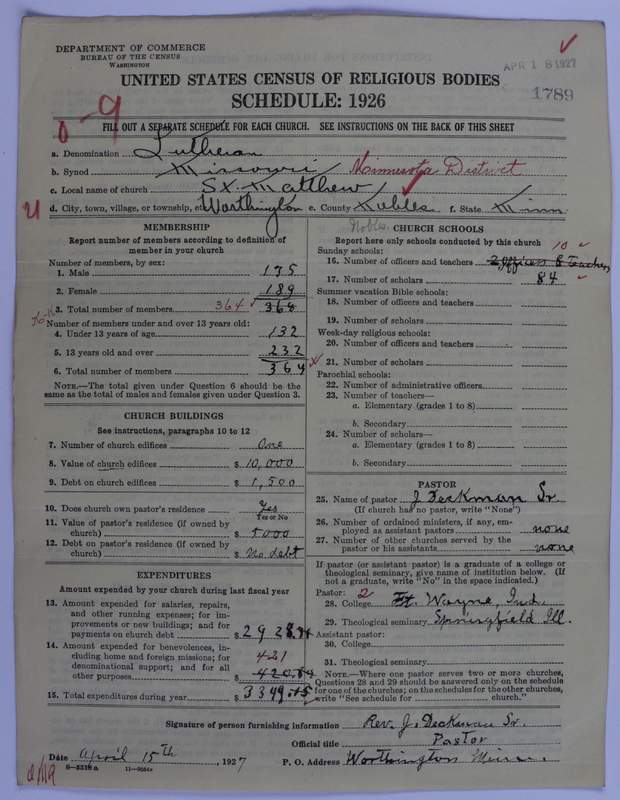 DEPARTMENT OF COMMERCE
BUREAU OF THE CENSUS
WASHINGTON
APR 18 1927
1789
UNITED STATES CENSUS OF RELIGIOUS BODIES
SCHEDULE: 1926
0-9
FILL OUT A SEPARATE SCHEDULE FOR EACH CHURCH. SEE INSTRUCTIONS ON THE BACK OF THIS SHEET
a. Denomination Lutheran
b. Synod Missouri Minnesota District
c. Local name of church St. Matthew
d. City, town, village, or township, etc. Worthington e. County Nobles f. State Minn.
Nobles
MEMBERSHIP
Report number of members according to definition of member in your church
Number of members, by sex:
1. Male 175
2. Female 189
3. Total number of members 364 368
Number of members under and over 13 years old:
4. Under 13 years of age 132
5. 13 years old and over 232
6. Total number of members 364
NOTE.—The total given under Question 6 should be
same as the total of males and females given under Question 3.
CHURCH BUILDINGS
See instructions, paragraphs 10 to 12
7. Number of church edifices One
8. Value of church edifices $ 10,000
9. Debt on church edifices $ 1,500
10. Does church own pastor's residence Yes
Yes or No
11. Value of pastor's residence (if owned by
church) $ 5000
12. Debt on pastor's residence (if owned by
church) $ No debt
EXPENDITURES
Amount expended by your church during last fiscal year
13. Amount expended for salaries, repairs,
and other running expenses; for im-
provements or new buildings; and for
payments on church debt $ 2928.
14. Amount expended for benevolences, in-
cluding home and foreign missions; for
denominational support; and for all
other purposes 421 $ 420.84
15. Total expenditures during year $ 3349.
CHURCH SCHOOLS
Report here only schools conducted by this church
Sunday schools:
10
16. Number of officers and teachers 2 officers 8 Teachers
17. Number of scholars 84
Summer vacation Bible schools:
18. Number of officers and teachers
19. Number of scholars
Week-day religious schools:
20. Number of officers and teachers
21. Number of scholars
Parochial schools:
22. Number of administrative officers
23. Number of teachers—
a. Elementary (grades 1 to 8)
b. Secondary
24. Number of scholars—
a. Elementary (grades 1 to 8)
b. Secondary
PASTOR
25. Name of pastor J Deckman Sr.
(If church has no pastor, write "None")
26. Number of ordained ministers, if any, em-
ployed as assistant pastors none
27. Number of other churches served by the
pastor or his assistants none
If pastor (or assistant pastor) is a graduate of a college or
theological seminary, give name of institution below. (If
not a graduate, write "No" in the space indicated.)
Pastor: 2
28. College Ft. Wayne, Ind.
29. Theological seminary Springfield Ill.
Assistant pastor:
30. College
31. Theological seminary
NOTE.—Where one pastor serves two or more churches,
Questions 28 and 29 should be answered only on the schedule
for one of the churches; on the schedules for the other churches,
write "See schedule for church."
Signature of person furnishing information Rev. J. Deckman Sr.
Official title Pastor
Date April 15th, 1927 P. O. Address Worthington Minn.
8-5518a 11-9054a